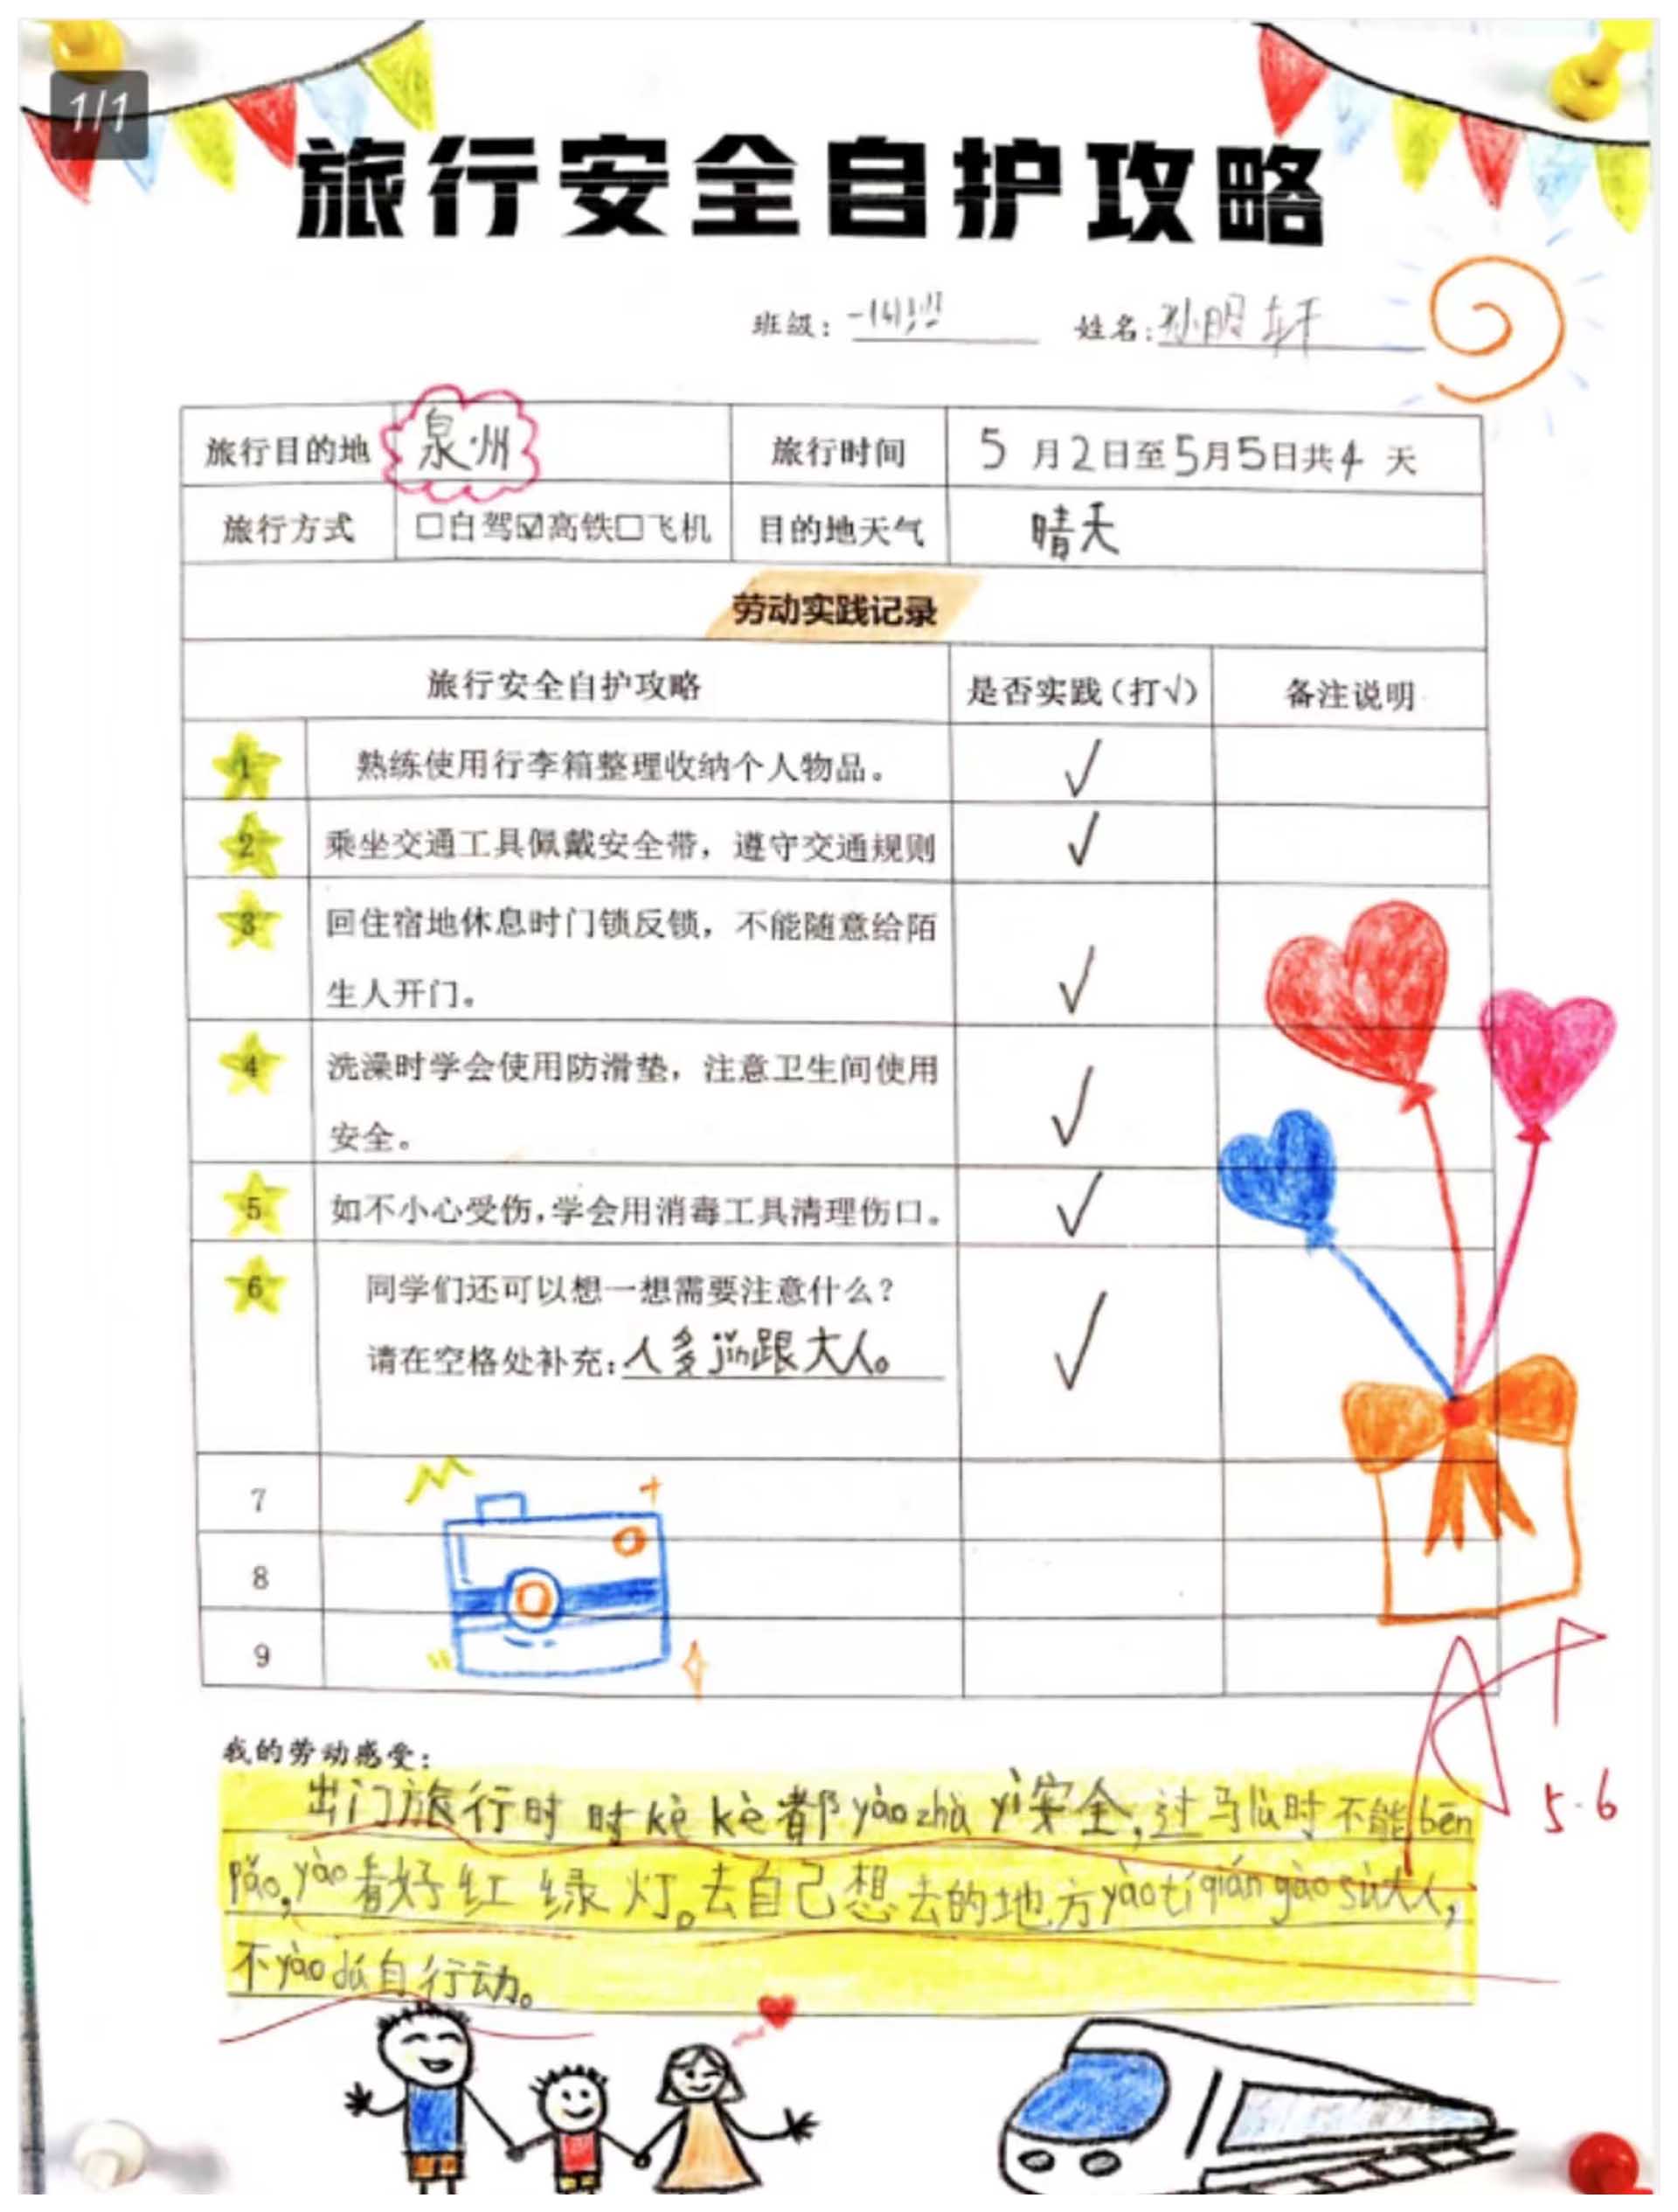 1/1
旅行安全自护攻略
班级：一(4)班 姓名：孙明轩
旅行目的地 泉州 旅行时间 5月2日至5月5日共4天
旅行方式 □自驾☑高铁□飞机 目的地天气 晴天
劳动实践记录
旅行安全自护攻略 是否实践（打√） 备注说明
1 熟练使用行李箱整理收纳个人物品。 √
2 乘坐交通工具佩戴安全带，遵守交通规则 √
3 回住宿地休息时门锁反锁，不能随意给陌
生人开门。 √
4 洗澡时学会使用防滑垫，注意卫生间使用
安全。 √
5 如不小心受伤，学会用消毒工具清理伤口。 √
6 同学们还可以想一想需要注意什么？
请在空格处补充：人多jǐn跟大人。 √
7
8
9
A+
我的劳动感受：
出门旅行时时kè kè都yào zhù yì安全，过马lù时不能bēn
pǎo，yào看好红绿灯。去自己想去的地方yào tí qián gào sù大人，
不yào dú自行动。
5.6